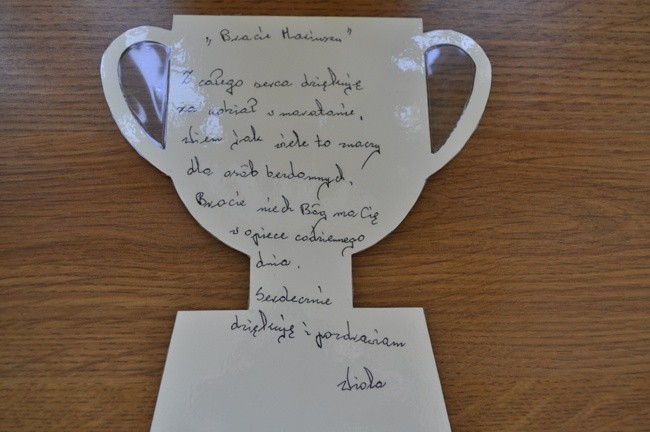 „Bracie Mariuszu"
Z całego serca dziękuję
za udział w maratonie,
wiem jak wiele to znaczy
dla osób bezdomnych.
Bracie niech Bóg ma Cię
w opiece codziennego
dnia.
Serdecznie
dziękuję i pozdrawiam